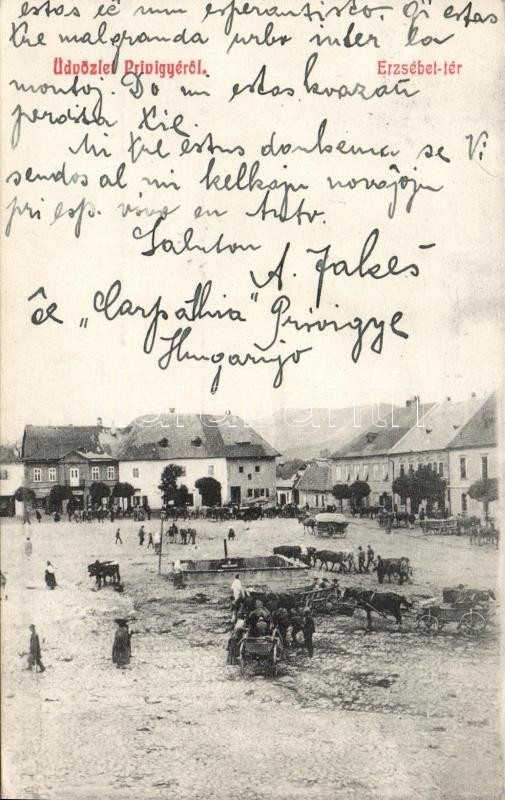 estas ie nun esperantisto. Ĝi estas
tre malgranda urbo inter la
Üdvözlet Privigyéről. Erzsébet-tér
montoj. Do mi estas kvazaŭ
perdita tie.
Mi tre estus dankema se Vi
sendos al mi kelkajn novaĵojn
pri esp. vivo en
Saluton
A. Jakeš
ĉe "Carpathia" Privigye
Hungarujo